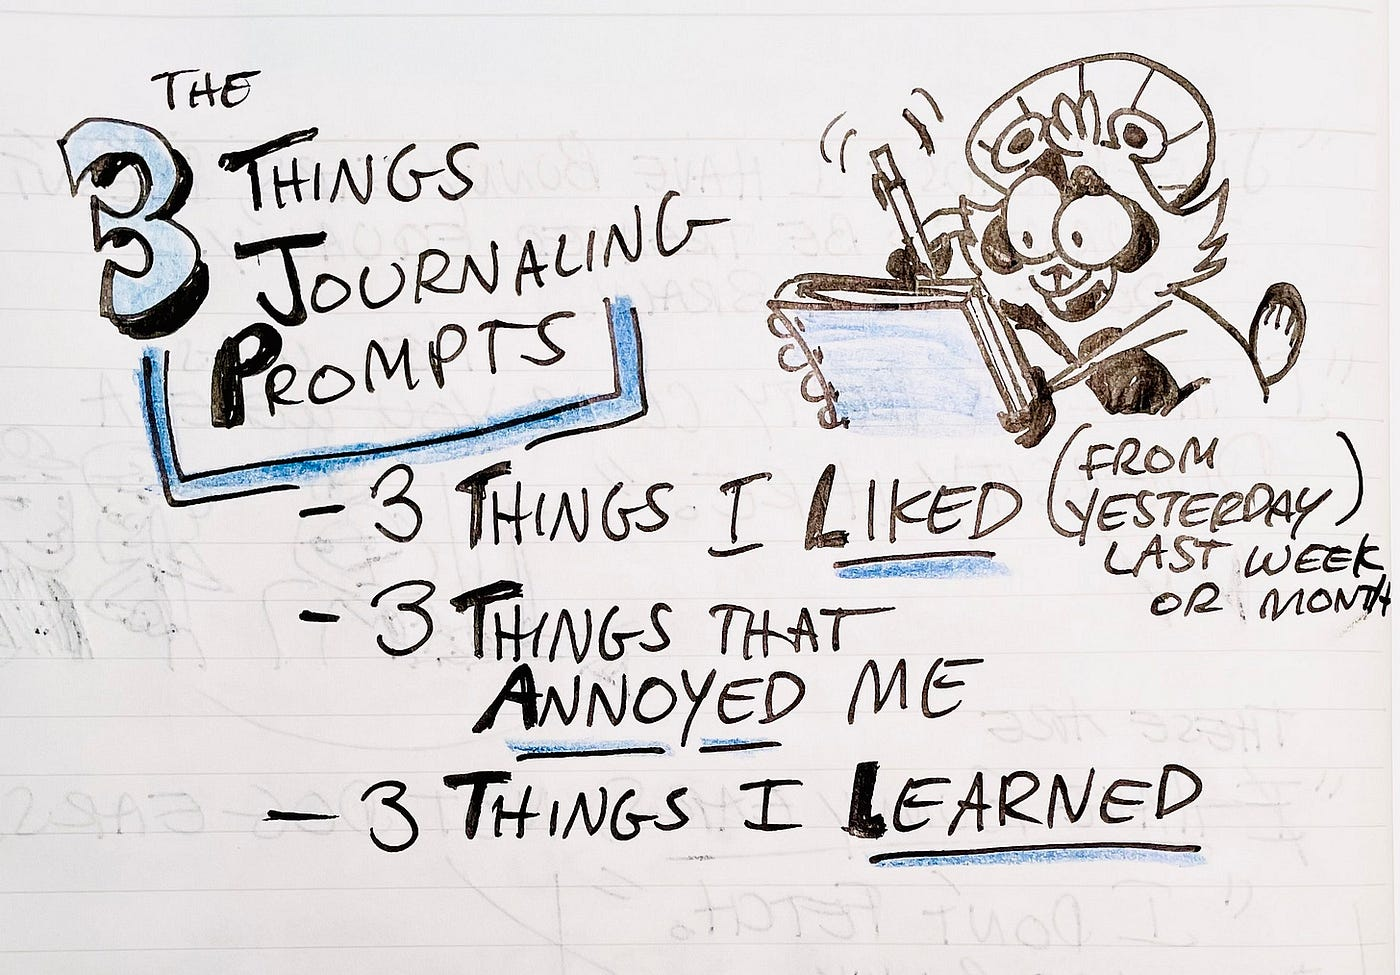 THE
3 THINGS
JOURNALING
PROMPTS
- 3 THINGS I LIKED (FROM
YESTERDAY)
LAST WEEK
OR MONTH
- 3 THINGS THAT
ANNOYED ME
- 3 THINGS I LEARNED
THESE ARE
"I DON'T FETCH."